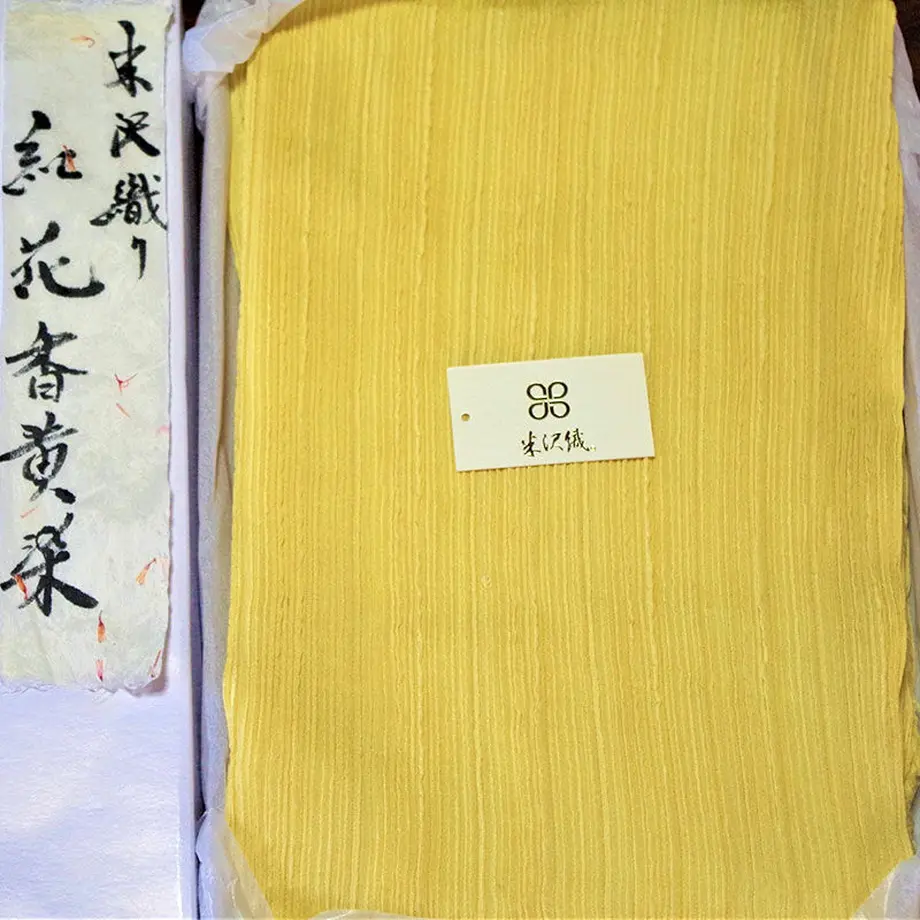 米沢織り
紅花香黄染
米沢織